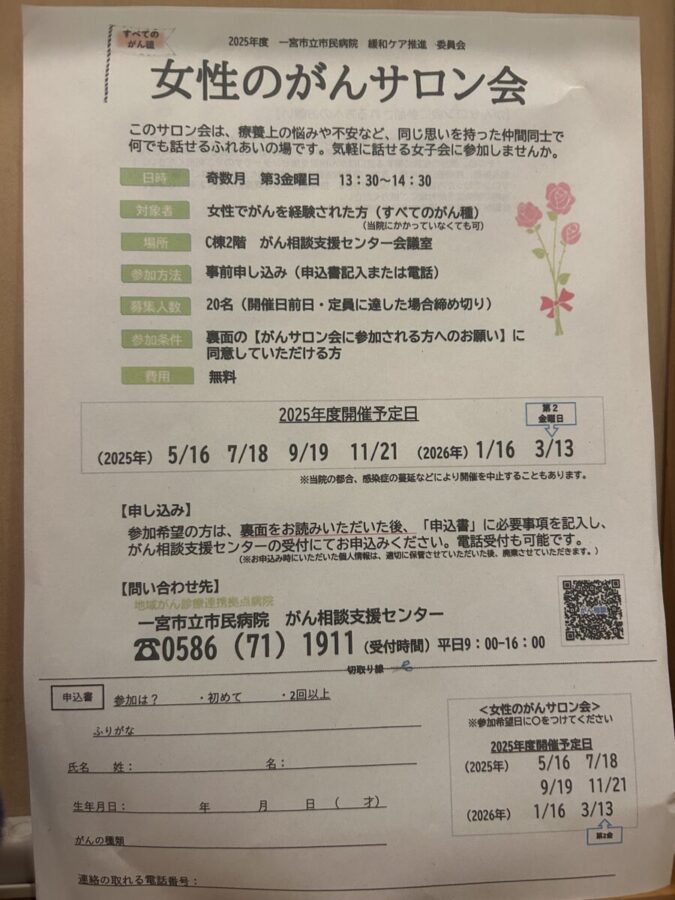 すべての
がん種
2025年度 一宮市立市民病院 緩和ケア推進 委員会
女性のがんサロン会
このサロン会は、療養上の悩みや不安など、同じ思いを持った仲間同士で
何でも話せるふれあいの場です。気軽に話せる女子会に参加しませんか。
日時 奇数月 第3金曜日 13:30~14:30
対象者 女性でがんを経験された方(すべてのがん種)
(当院にかかっていなくても可)
場所 C棟2階 がん相談支援センター会議室
参加方法 事前申し込み(申込書記入または電話)
募集人数 20名(開催日前日・定員に達した場合締め切り)
参加条件 裏面の【がんサロン会に参加される方へのお願い】に
同意していただける方
費用 無料
2025年度開催予定日
第2
金曜日
(2025年) 5/16 7/18 9/19 11/21 (2026年) 1/16 3/13
※当院の都合、感染症の蔓延などにより開催を中止することもあります。
【申し込み】
参加希望の方は、裏面をお読みいただいた後、「申込書」に必要事項を記入し、
がん相談支援センターの受付にてお申込みください。電話受付も可能です。
(※お申込み時にいただいた個人情報は、適切に保管させていただいた後、廃棄させていただきます。)
【問い合わせ先】
地域がん診療連携拠点病院
一宮市立市民病院 がん相談支援センター
☎0586(71)1911(受付時間)平日9:00-16:00
切取り線
申込書 参加は? ・初めて ・2回以上
ふりがな
氏名 姓: 名:
生年月日: 年 月 日 ( 才)
がんの種類
連絡の取れる電話番号:
<女性のがんサロン会>
※参加希望日に○をつけてください
2025年度開催予定日
(2025年) 5/16 7/18
9/19 11/21
(2026年) 1/16 3/13
第2金